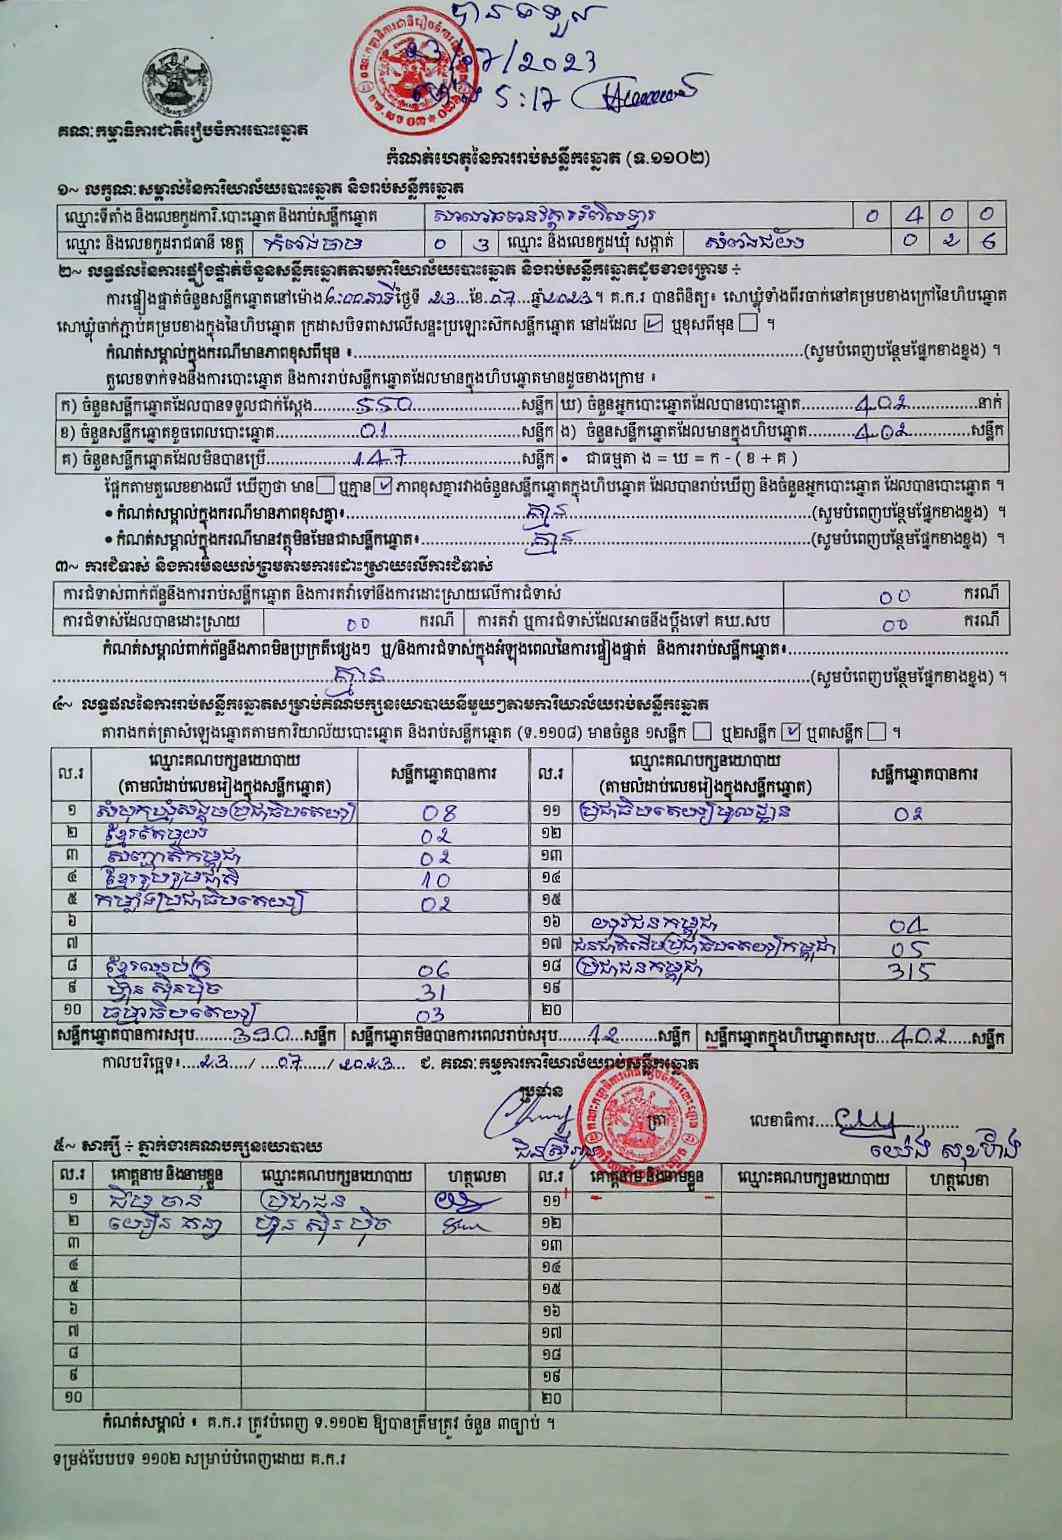 បានទទួល
23/07/2023
ម៉ោង 5:17
គណៈកម្មាធិការជាតិរៀបចំការបោះឆ្នោត
កំណត់ហេតុនៃការរាប់សន្លឹកឆ្នោត (ទ.១១០២)
១~ លក្ខណៈសម្គាល់នៃការិយាល័យបោះឆ្នោត និងរាប់សន្លឹកឆ្នោត
ឈ្មោះទីតាំង និងលេខកូដការិ.បោះឆ្នោត និងរាប់សន្លឹកឆ្នោត 0 4 0 0
ឈ្មោះ និងលេខកូដរាជធានី ខេត្ត កំពង់ចាម 0 3 ឈ្មោះ និងលេខកូដឃុំ សង្កាត់ សំពងជ័យ 0 2 6
២~ លទ្ធផលនៃការផ្ទៀងផ្ទាត់ចំនួនសន្លឹកឆ្នោតតាមការិយាល័យបោះឆ្នោត និងរាប់សន្លឹកឆ្នោតដូចខាងក្រោម ÷
ការផ្ទៀងផ្ទាត់ចំនួនសន្លឹកឆ្នោតនៅម៉ោង ៦:00នាទី ថ្ងៃទី 23 ខែ 07 ឆ្នាំ 2023 ។ គ.ក.រ បានពិនិត្យ៖ សោឃ្លុំទាំងពីរចាក់នៅគម្របខាងក្រៅនៃហិបឆ្នោត
សោឃ្លុំចាក់ភ្ជាប់គម្របខាងក្នុងនៃហិបឆ្នោត ក្រដាសបិទពាសលើសន្ទះប្រឡោះស៊កសន្លឹកឆ្នោត នៅដដែល ☑ ឬខុសពីមុន ☐ ។
កំណត់សម្គាល់ក្នុងករណីមានភាពខុសពីមុន ៖ (សូមបំពេញបន្ថែមផ្នែកខាងខ្នង) ។
តួលេខទាក់ទងនឹងការបោះឆ្នោត និងការរាប់សន្លឹកឆ្នោតដែលមានក្នុងហិបឆ្នោតមានដូចខាងក្រោម ៖
ក) ចំនួនសន្លឹកឆ្នោតដែលបានទទួលជាក់ស្តែង 550 សន្លឹក ឃ) ចំនួនអ្នកបោះឆ្នោតដែលបានបោះឆ្នោត 402 នាក់
ខ) ចំនួនសន្លឹកឆ្នោតខូចពេលបោះឆ្នោត 01 សន្លឹក ង) ចំនួនសន្លឹកឆ្នោតដែលមានក្នុងហិបឆ្នោត 402 សន្លឹក
គ) ចំនួនសន្លឹកឆ្នោតដែលមិនបានប្រើ 147 សន្លឹក • ជាធម្មតា ង = ឃ = ក - ( ខ + គ )
ផ្អែកតាមតួលេខខាងលើ ឃើញថា មាន ☐ ឬគ្មាន ☑ ភាពខុសគ្នារវាងចំនួនសន្លឹកឆ្នោតក្នុងហិបឆ្នោត ដែលបានរាប់ឃើញ និងចំនួនអ្នកបោះឆ្នោត ដែលបានបោះឆ្នោត ។
• កំណត់សម្គាល់ក្នុងករណីមានភាពខុសគ្នា៖ គ្មាន (សូមបំពេញបន្ថែមផ្នែកខាងខ្នង) ។
• កំណត់សម្គាល់ក្នុងករណីមានវត្ថុមិនមែនជាសន្លឹកឆ្នោត៖ គ្មាន (សូមបំពេញបន្ថែមផ្នែកខាងខ្នង) ។
៣~ ការជំទាស់ និងការមិនយល់ព្រមតាមការដោះស្រាយលើការជំទាស់
ការជំទាស់ពាក់ព័ន្ធនឹងការរាប់សន្លឹកឆ្នោត និងការតវ៉ាទៅនឹងការដោះស្រាយលើការជំទាស់ 00 ករណី
ការជំទាស់ដែលបានដោះស្រាយ 00 ករណី ការតវ៉ា ឬការជំទាស់ដែលអាចនឹងប្តឹងទៅ គឃ.សប 00 ករណី
កំណត់សម្គាល់ពាក់ព័ន្ធនឹងភាពមិនប្រក្រតីផ្សេងៗ ឬ/និងការជំទាស់ក្នុងអំឡុងពេលនៃការផ្ទៀងផ្ទាត់ និងការរាប់សន្លឹកឆ្នោត៖
គ្មាន (សូមបំពេញបន្ថែមផ្នែកខាងខ្នង) ។
៤~ លទ្ធផលនៃការរាប់សន្លឹកឆ្នោតសម្រាប់គណបក្សនយោបាយនីមួយៗតាមការិយាល័យរាប់សន្លឹកឆ្នោត
តារាងកត់ត្រាសំឡេងឆ្នោតតាមការិយាល័យបោះឆ្នោត និងរាប់សន្លឹកឆ្នោត (ទ.១១០៨) មានចំនួន ១សន្លឹក ☐ ឬ២សន្លឹក ☑ ឬ៣សន្លឹក ☐ ។
ល.រ ឈ្មោះគណបក្សនយោបាយ (តាមលំដាប់លេខរៀងក្នុងសន្លឹកឆ្នោត) សន្លឹកឆ្នោតបានការ ល.រ ឈ្មោះគណបក្សនយោបាយ (តាមលំដាប់លេខរៀងក្នុងសន្លឹកឆ្នោត) សន្លឹកឆ្នោតបានការ
១ សំបុកឃ្មុំសង្គមប្រជាធិបតេយ្យ 08 ១១ ប្រជាធិបតេយ្យមូលដ្ឋាន 02
២ ខ្មែរតែមួយ 02 ១២
៣ សញ្ជាតិកម្ពុជា 02 ១៣
៤ ខ្មែររួបរួមជាតិ 10 ១៤
៥ កម្លាំងប្រជាធិបតេយ្យ 02 ១៥
៦ ១៦ យុវជនកម្ពុជា 04
៧ ១៧ ជនជាតិដើមប្រជាធិបតេយ្យកម្ពុជា 05
៨ ខ្មែរឈប់ក្រ 06 ១៨ ប្រជាជនកម្ពុជា 315
៩ ហ៊្វុនស៊ិនប៉ិច 31 ១៩
១០ ធម្មាធិបតេយ្យ 03 ២០
សន្លឹកឆ្នោតបានការសរុប 390 សន្លឹក សន្លឹកឆ្នោតមិនបានការពេលរាប់សរុប 12 សន្លឹក សន្លឹកឆ្នោតក្នុងហិបឆ្នោតសរុប 402 សន្លឹក
កាលបរិច្ឆេទ៖ 23 / 07 / 2023 ជ. គណៈកម្មការការិយាល័យរាប់សន្លឹកឆ្នោត
ប្រធាន ត្រា លេខាធិការ
យ៉េង សុខហ៊ាង
៥~ សាក្សី ÷ ភ្នាក់ងារគណបក្សនយោបាយ
ល.រ គោត្តនាម និងនាមខ្លួន ឈ្មោះគណបក្សនយោបាយ ហត្ថលេខា ល.រ គោត្តនាម និងនាមខ្លួន ឈ្មោះគណបក្សនយោបាយ ហត្ថលេខា
១ ជឹម ចាន់ ប្រជាជន ១១
២ ហ៊្វុនស៊ិនប៉ិច ១២
៣ ១៣
៤ ១៤
៥ ១៥
៦ ១៦
៧ ១៧
៨ ១៨
៩ ១៩
១០ ២០
កំណត់សម្គាល់ ៖ គ.ក.រ ត្រូវបំពេញ ទ.១១០២ ឱ្យបានត្រឹមត្រូវ ចំនួន ៣ច្បាប់ ។
ទម្រង់បែបបទ ១១០២ សម្រាប់បំពេញដោយ គ.ក.រ